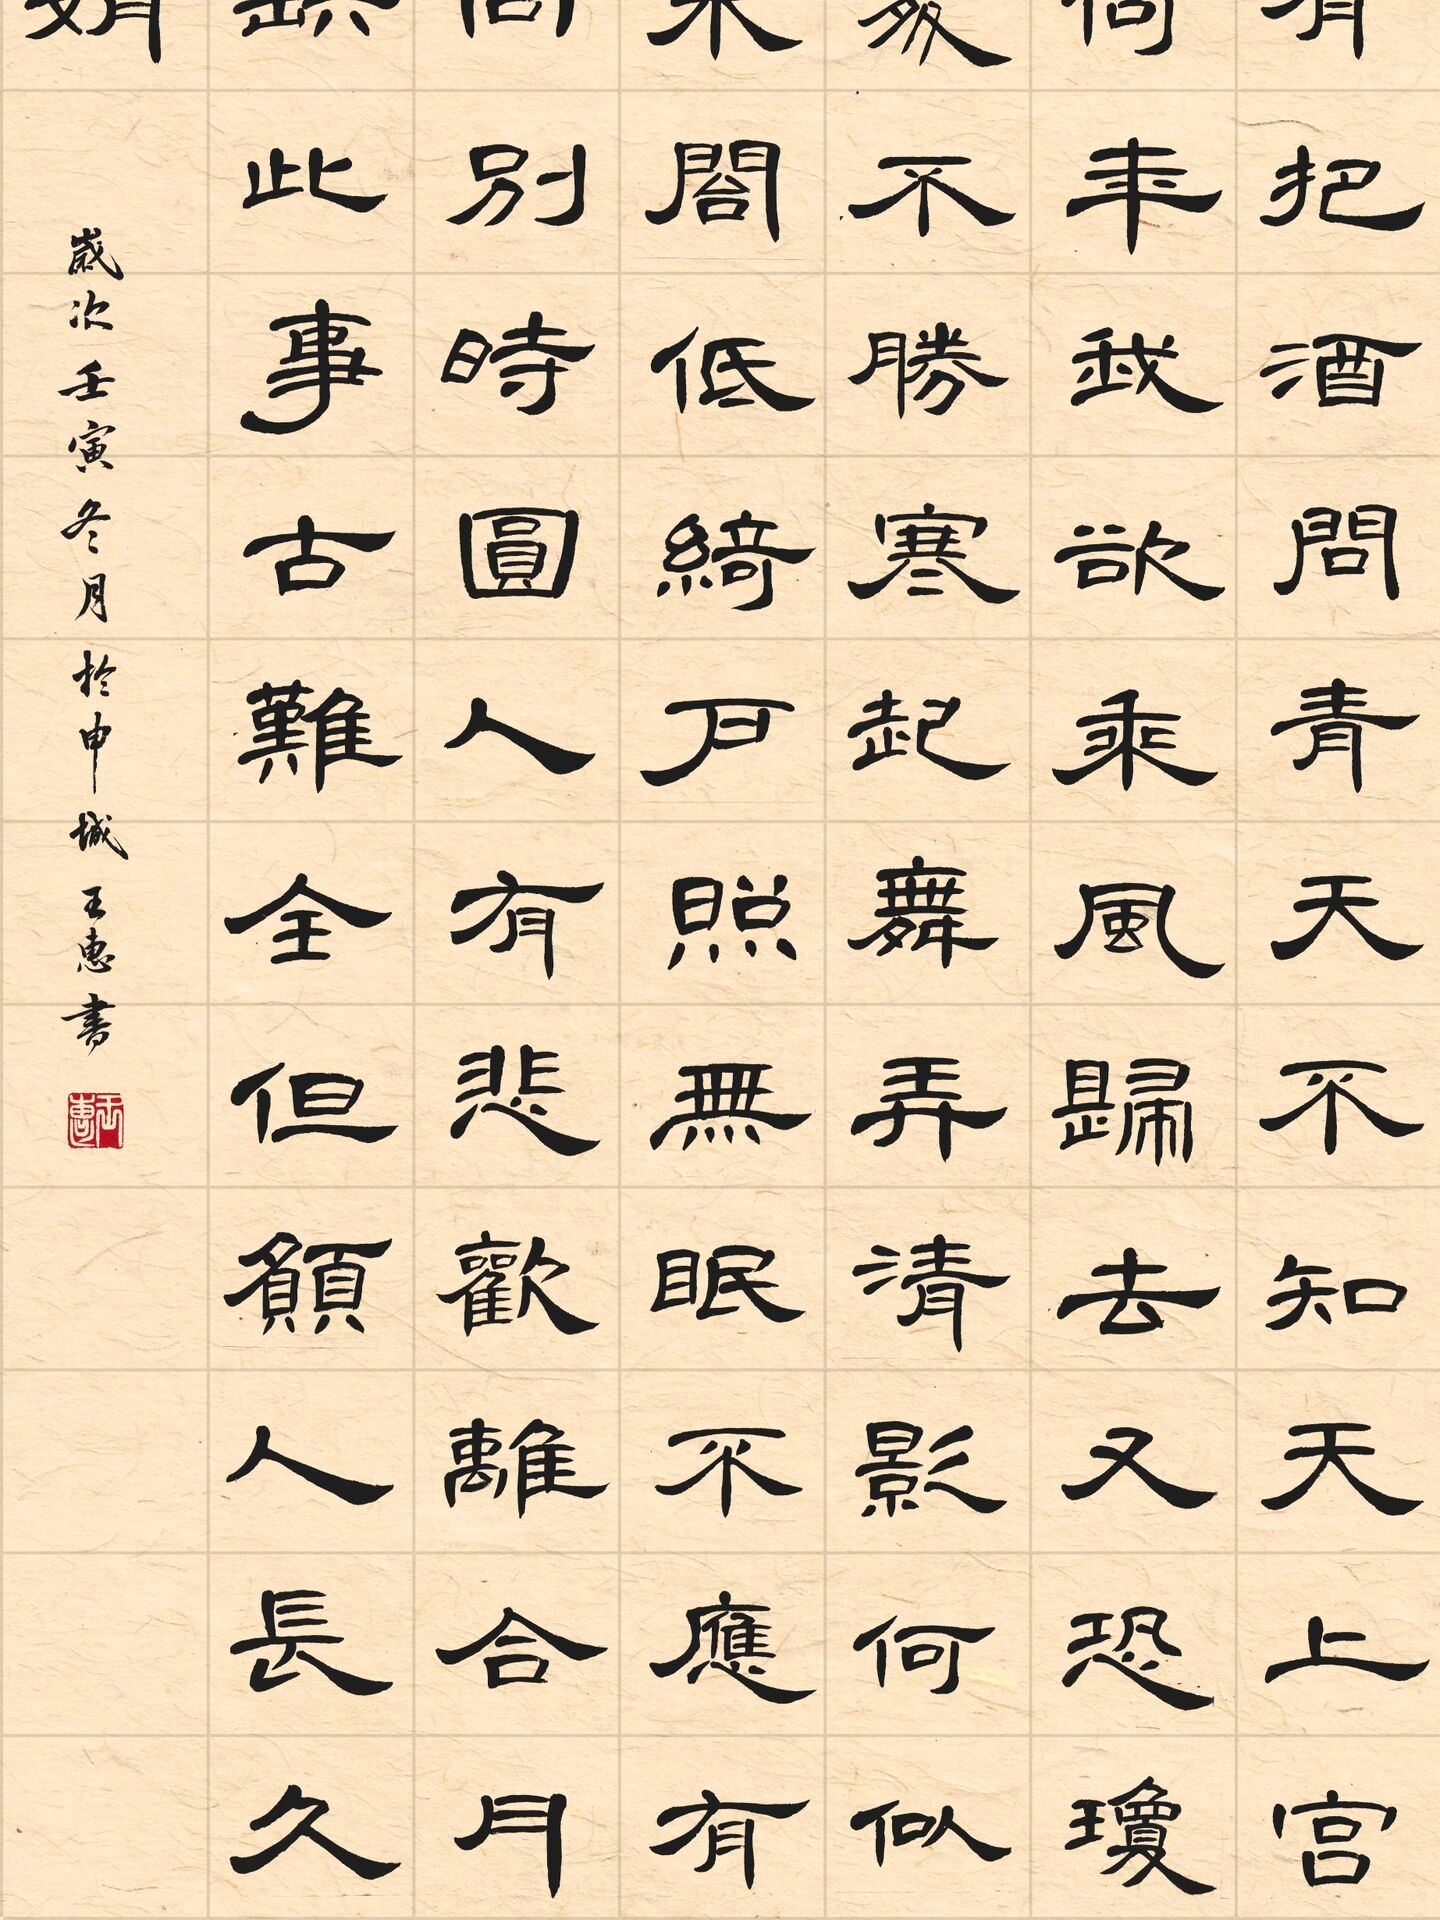 有把酒問青天不知天上宫
何年我欲乘風歸去又恐瓊
處不勝寒起舞弄清影何似
朱閤低綺户照無眠不應有
向別時圓人有悲歡離合月
缺此事古難全但願人長久
娟
歲次壬寅冬月於申城王惠書
王惠